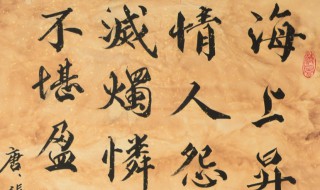 海上昇
情人怨
滅燭憐
不堪盈
唐